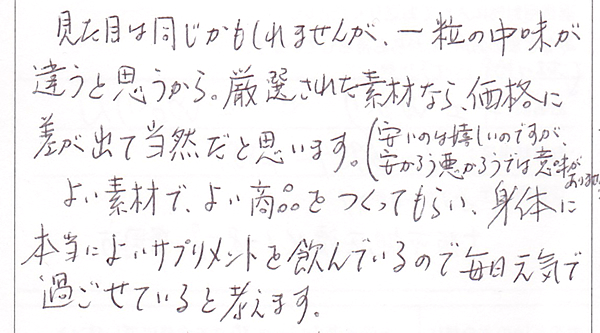 見た目は同じかもしれませんが、一粒の中味が
違うと思うから。厳選された素材なら、価格に
差が出て当然だと思います。(安いのは嬉しいのですが、
安かろう悪かろうでは意味が
ありませ
よい素材で、よい商品をつくってもらい、身体に
本当によいサプリメントを飲んでいるので毎日元気で
過ごせていると考えます。